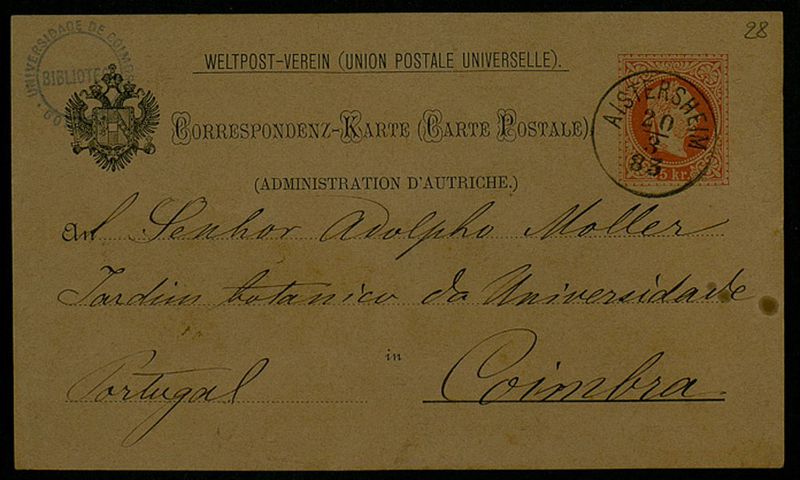 28
UNIVERSIDADE DE COIMBRA
BIBLIOTECA
WELTPOST-VEREIN (UNION POSTALE UNIVERSELLE).
CORRESPONDENZ-KARTE (CARTE POSTALE)
(ADMINISTRATION D'AUTRICHE.)
AISTERSHEIM
20
3
83
5 kr.
An Senhor Adolpho Moller
Jardim botanico da Universidade
in
Portugal Coimbra